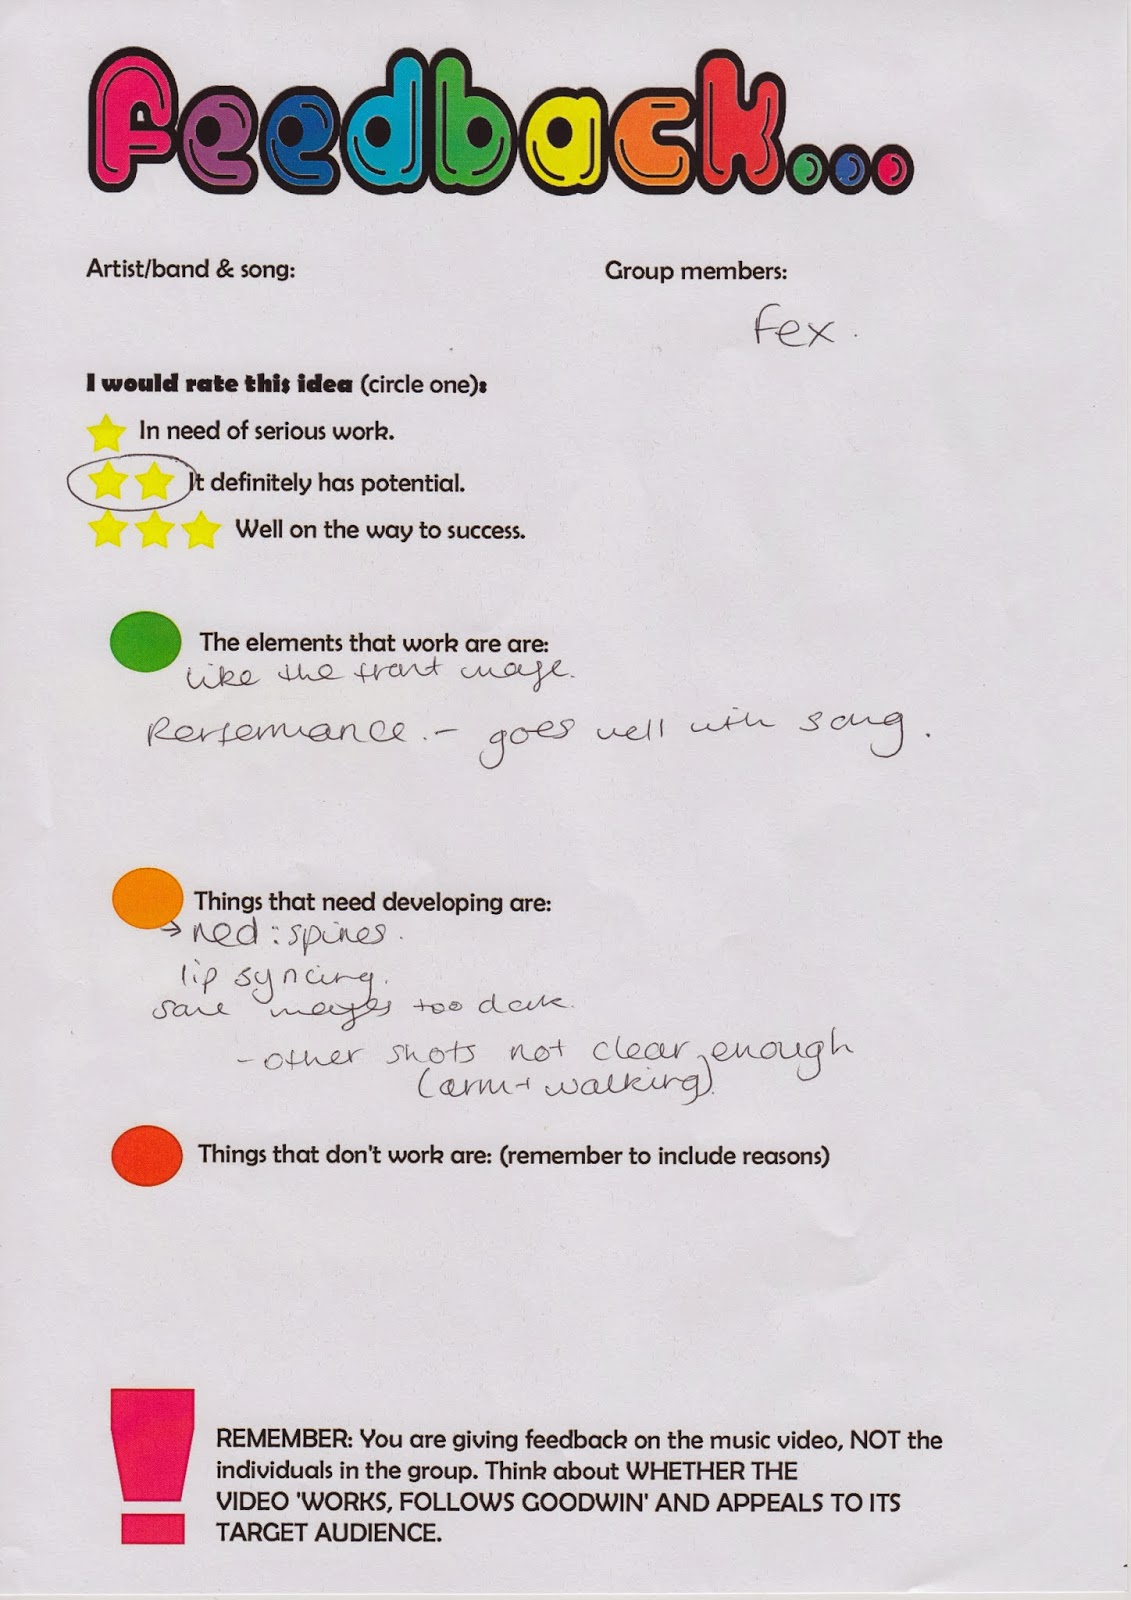 Feedback...
Artist/band & song:
Group members:
Fex.
I would rate this idea (circle one):
In need of serious work.
It definitely has potential.
Well on the way to success.
The elements that work are are:
like the front image.
Performance. - goes well with song.
Things that need developing are:
→ need : spines.
lip syncing.
some images too dark.
- other shots not clear enough
(arm + walking).
Things that don't work are: (remember to include reasons)
REMEMBER: You are giving feedback on the music video, NOT the
individuals in the group. Think about WHETHER THE
VIDEO 'WORKS, FOLLOWS GOODWIN' AND APPEALS TO ITS
TARGET AUDIENCE.